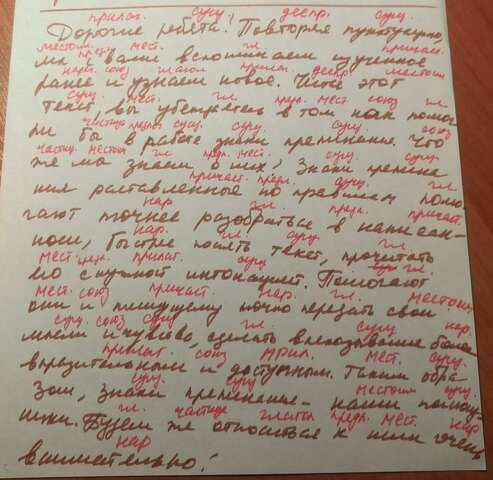 прилаг. сущ. деепр. сущ.
Дорогие ребята! Повторяя пунктуацию,
местоим. предл. мест. гл. причаст.
мы с вами вспоминаем изученное
нареч. союз глагол прилаг. деепр. местоим
ранее и узнаем новое. Читая этот
сущ. мест. гл. предл. мест. союз гл.
текст, вы убедитесь в том как помог
частица предлог сущ. сущ. сущ. союз
ли бы в работе знаки препинания. Что
частиц. местоим гл. предл. мест. сущ. сущ.
же мы знаем о них? Знаки препина
причаст. предл. сущ. гл.
ния расставленные по правилам помо
нар. гл. предл. причаст.
гают точнее разобраться в написан-
нар. гл. сущ. гл.
ном, быстрее понять текст, прочитать
мест. предл. прилаг. сущ. гл.
его с нужной интонацией. Помогают
мест. союз причаст. нар. гл. местоим
они и пишущему точно передать свои
сущ. союз сущ. гл. сущ. нар.
мысли и чувства, сделать высказывание более
прилаг. союз прил. мест. сущ.
выразительным и доступным. Таким обра
сущ. сущ. местоим сущ.
зом, знаки препинания - наши помощ
гл. частица глагол предл. мест. нар
ники. Будем же относиться к ним очень
нар
внимательно!